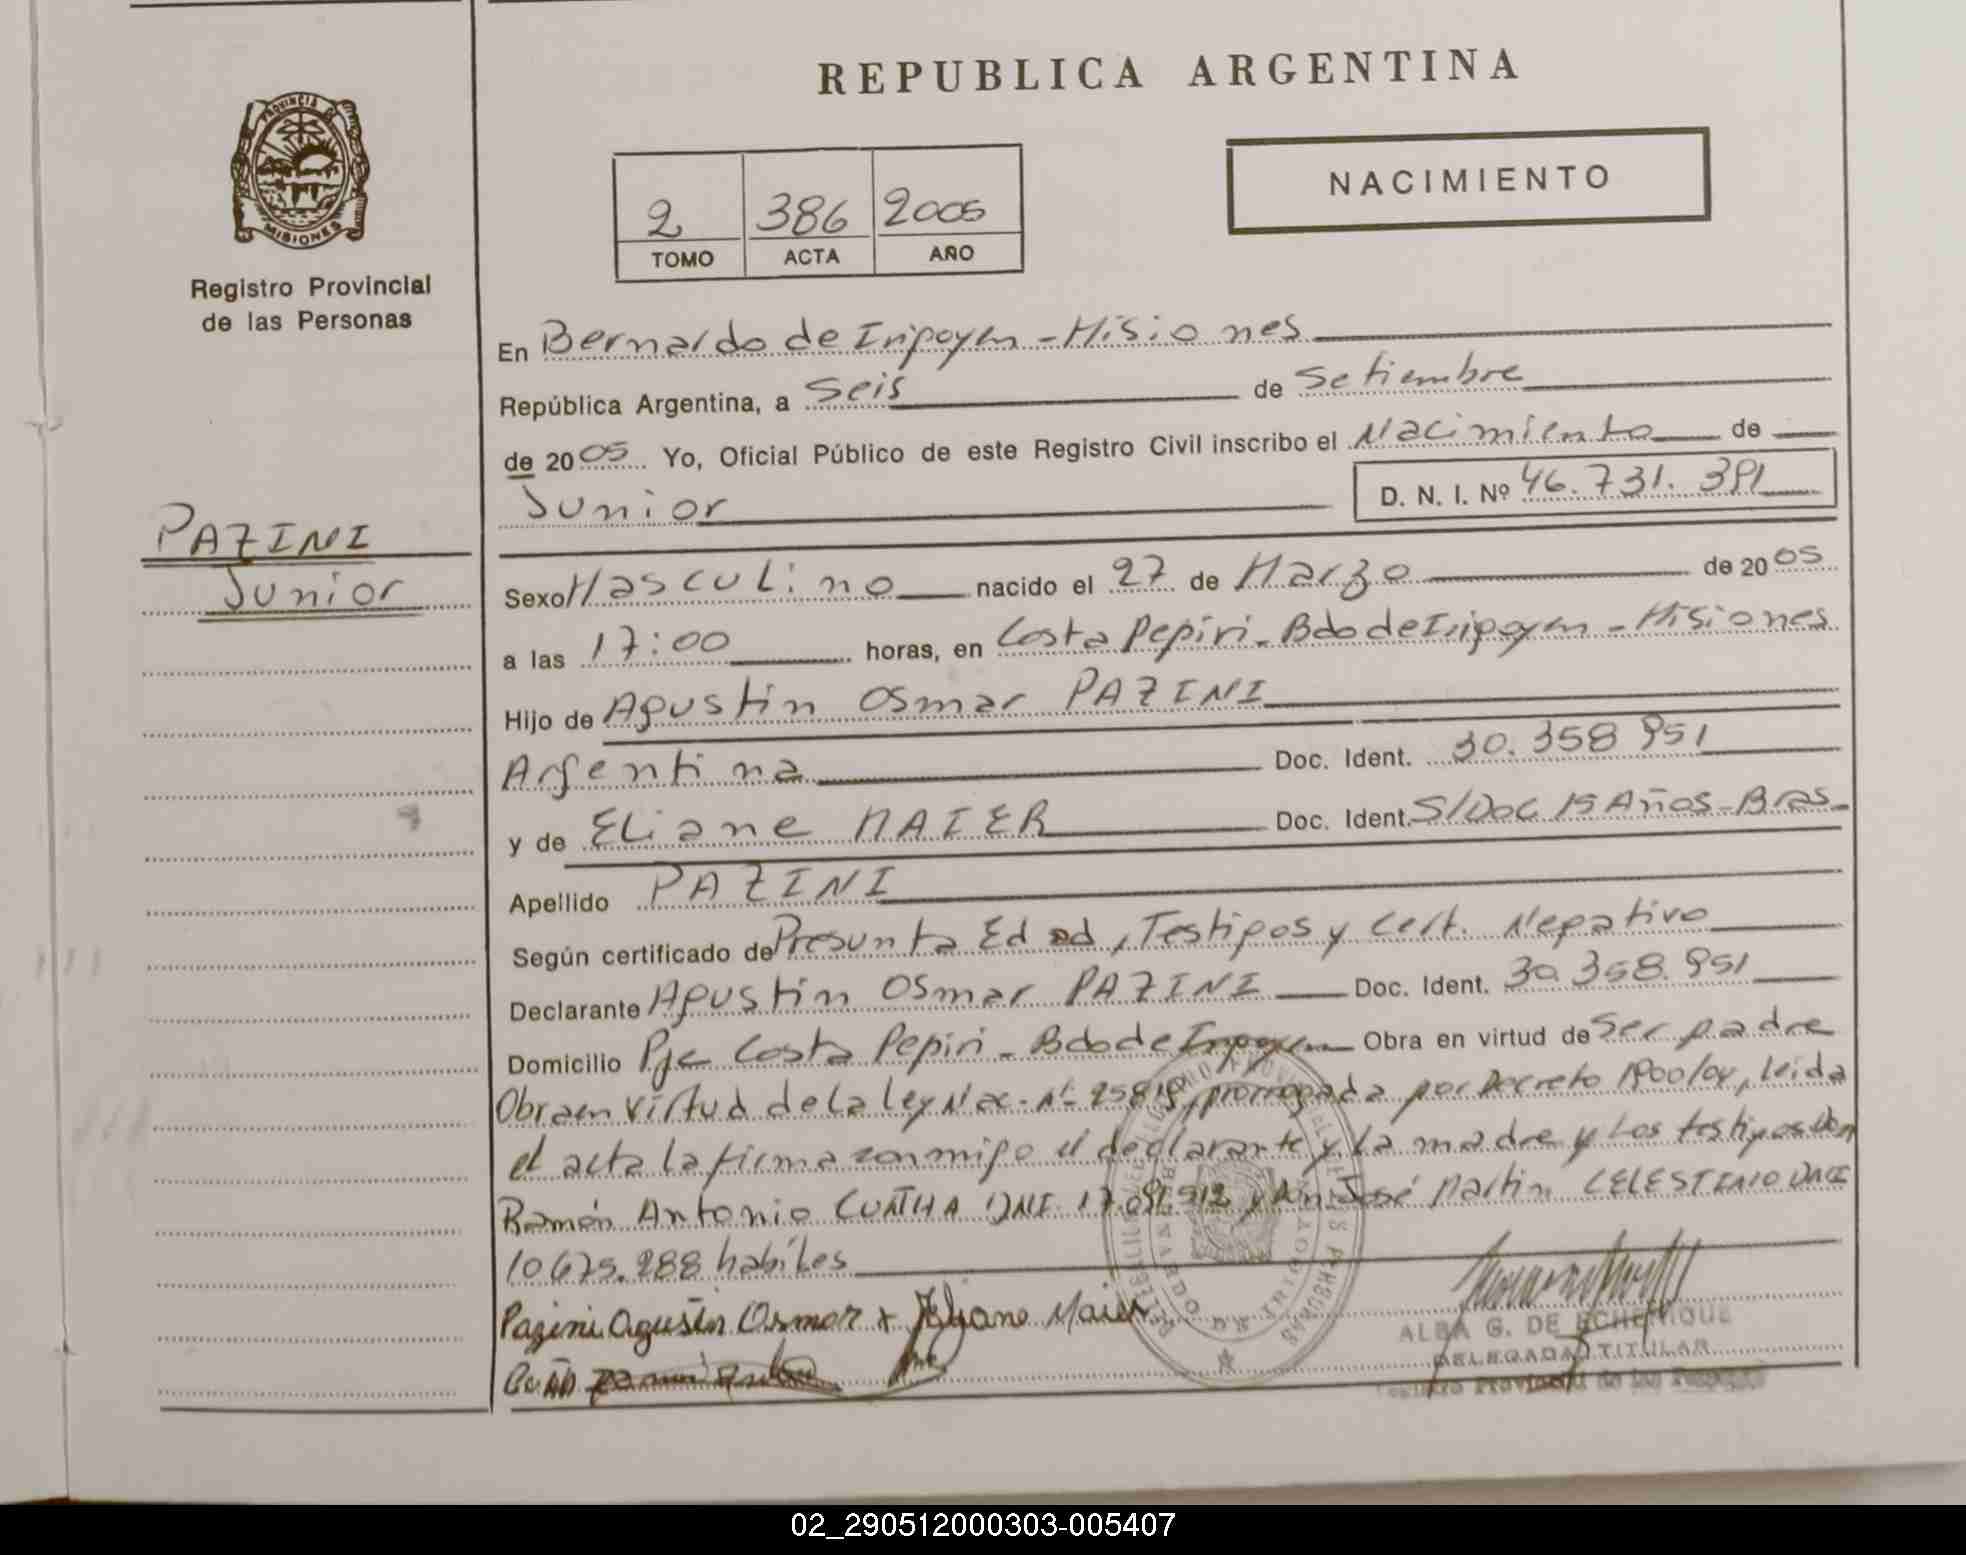 REPUBLICA ARGENTINA
PROVINCIA DE MISIONES
Registro Provincial
de las Personas
2 386 2005
TOMO ACTA AÑO
NACIMIENTO
PAZINI
Junior
En Bernardo de Irigoyen - Misiones
República Argentina, a Seis de Setiembre
de 2005 Yo, Oficial Público de este Registro Civil inscribo el Nacimiento de
Junior D. N. I. Nº 46.731.391
Sexo Masculino nacido el 27 de Marzo de 2005
a las 17:00 horas, en Costa Pepiri - Bdo de Irigoyen - Misiones
Hijo de Agustin Osmar PAZINI
Argentina Doc. Ident. 30.358 951
y de Eliane MAIER Doc. Ident. S/Doc 15 Años - Bras-
Apellido PAZINI
Según certificado de Presunta Edad, Testigos y Cert. Negativo
Declarante Agustin Osmar PAZINI Doc. Ident. 30.358.951
Domicilio Pje Costa Pepiri - Bdo de Irigoyen Obra en virtud de Ser padre
Obra en virtud de la Ley Nac. Nº 25819, prorrogada por Decreto 1900/04, leida
el acta la firma conmigo el declarante y la madre y los testigos Don
Ramón Antonio CUNTHA DNI 17. y José Martin CELESTINO DNI
10.675.288 habiles
Pazini Agustin Osmar + Eliane Maier
ALBA G. DE ECHENIQUE
DELEGADA TITULAR
Registro Provincial de las Personas
02_290512000303-005407